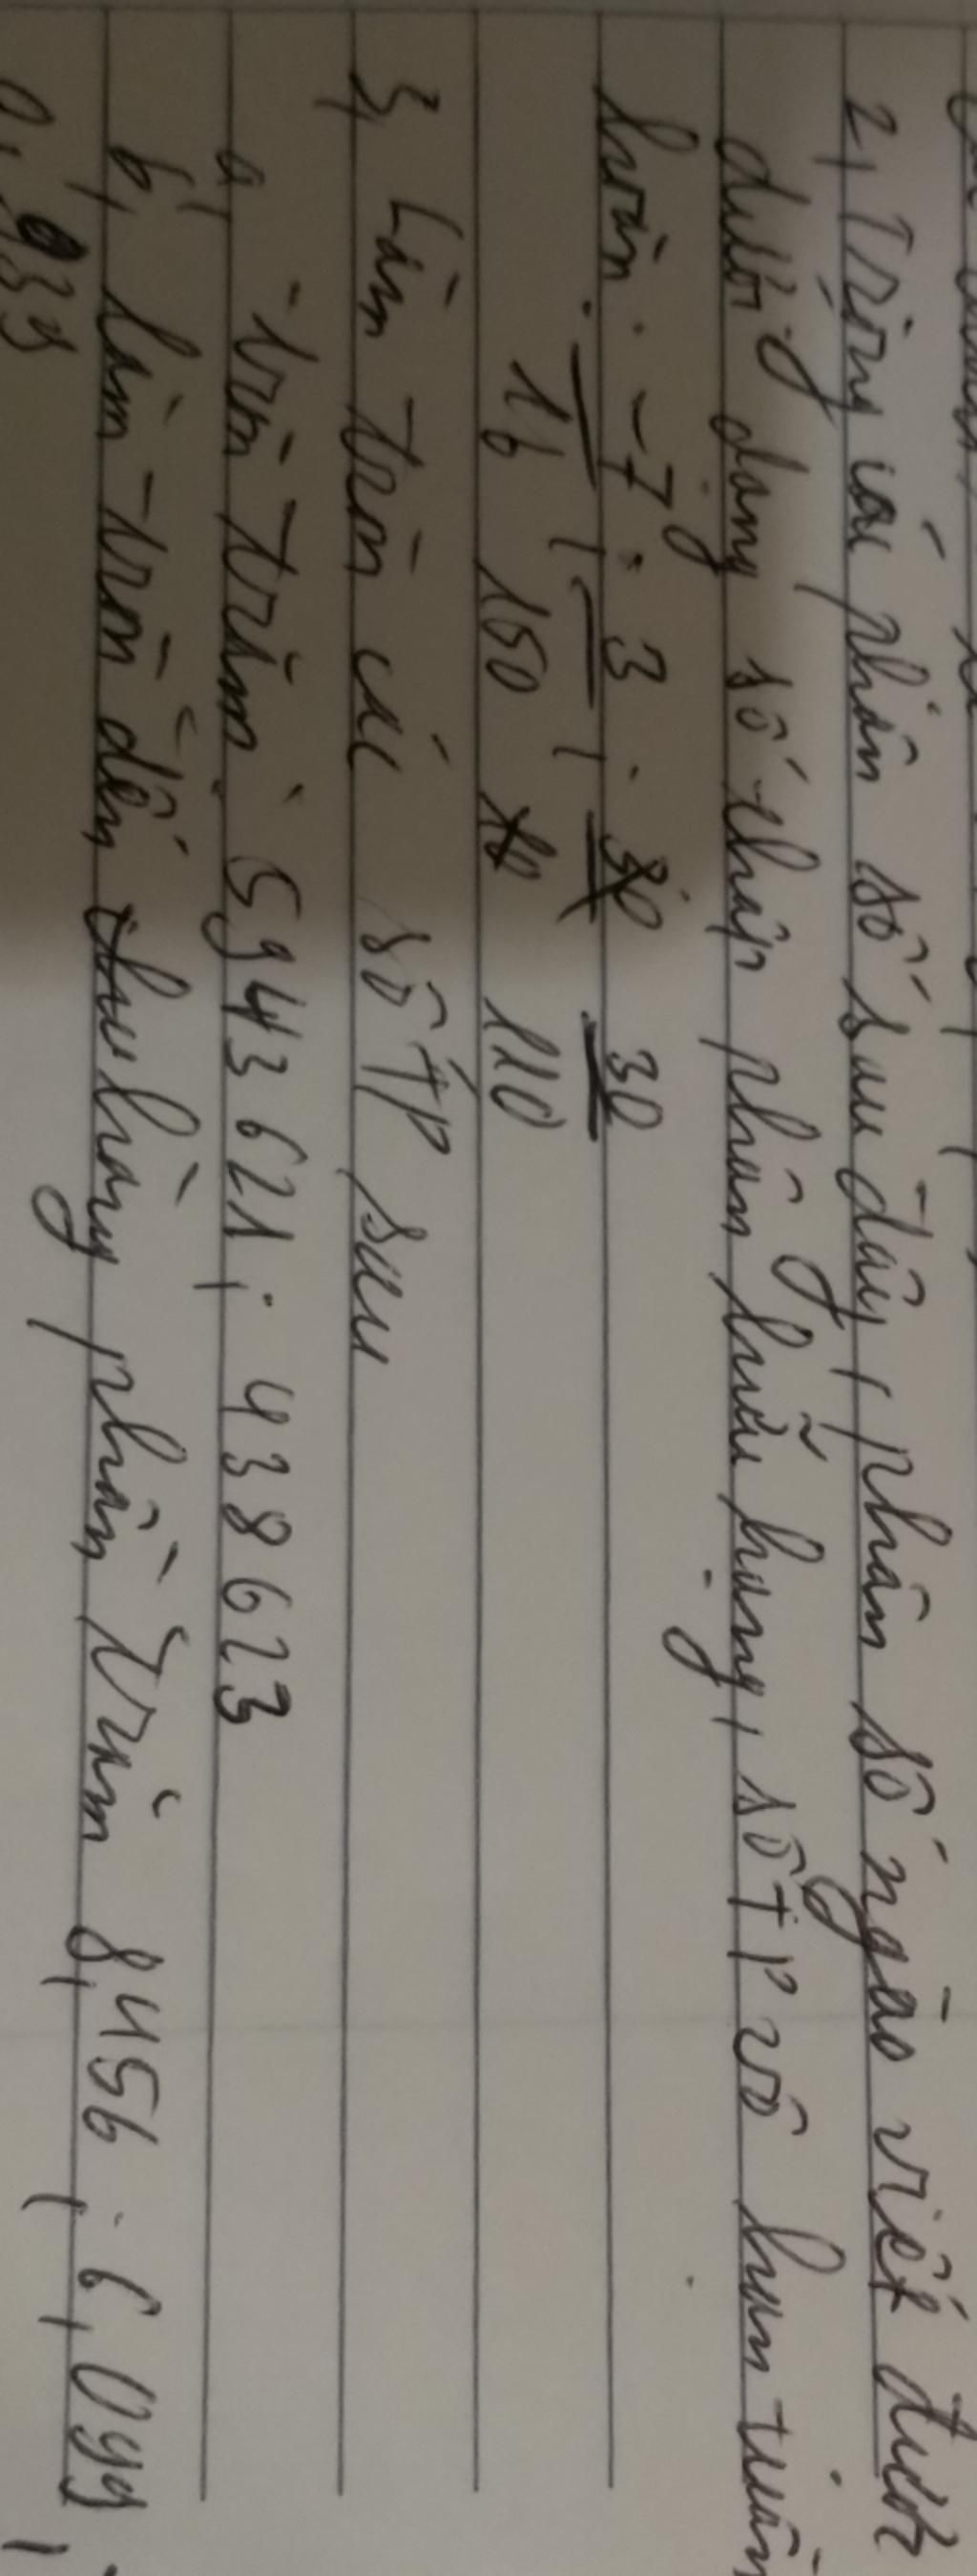 2, Trong các phân số sau đây, phân số nào viết được
dưới dạng số thập phân hữu hạng, số TP vô hạn tuần
hoàn: -7/16 ; 3/150 ; 30/110
3, Làm tròn các số TP sau
a, tròn trăm: 5943621; 438623
b, làm tròn đến hàng phần trăm 8,456; 6,099;